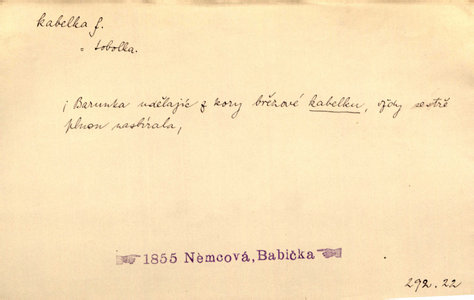 kabelka f.
= tobolka.
; Barunka udělajíc z kory březové kabelku, vždy sestře
plnou nasbírala,
1855 Němcová, Babička
292. 22